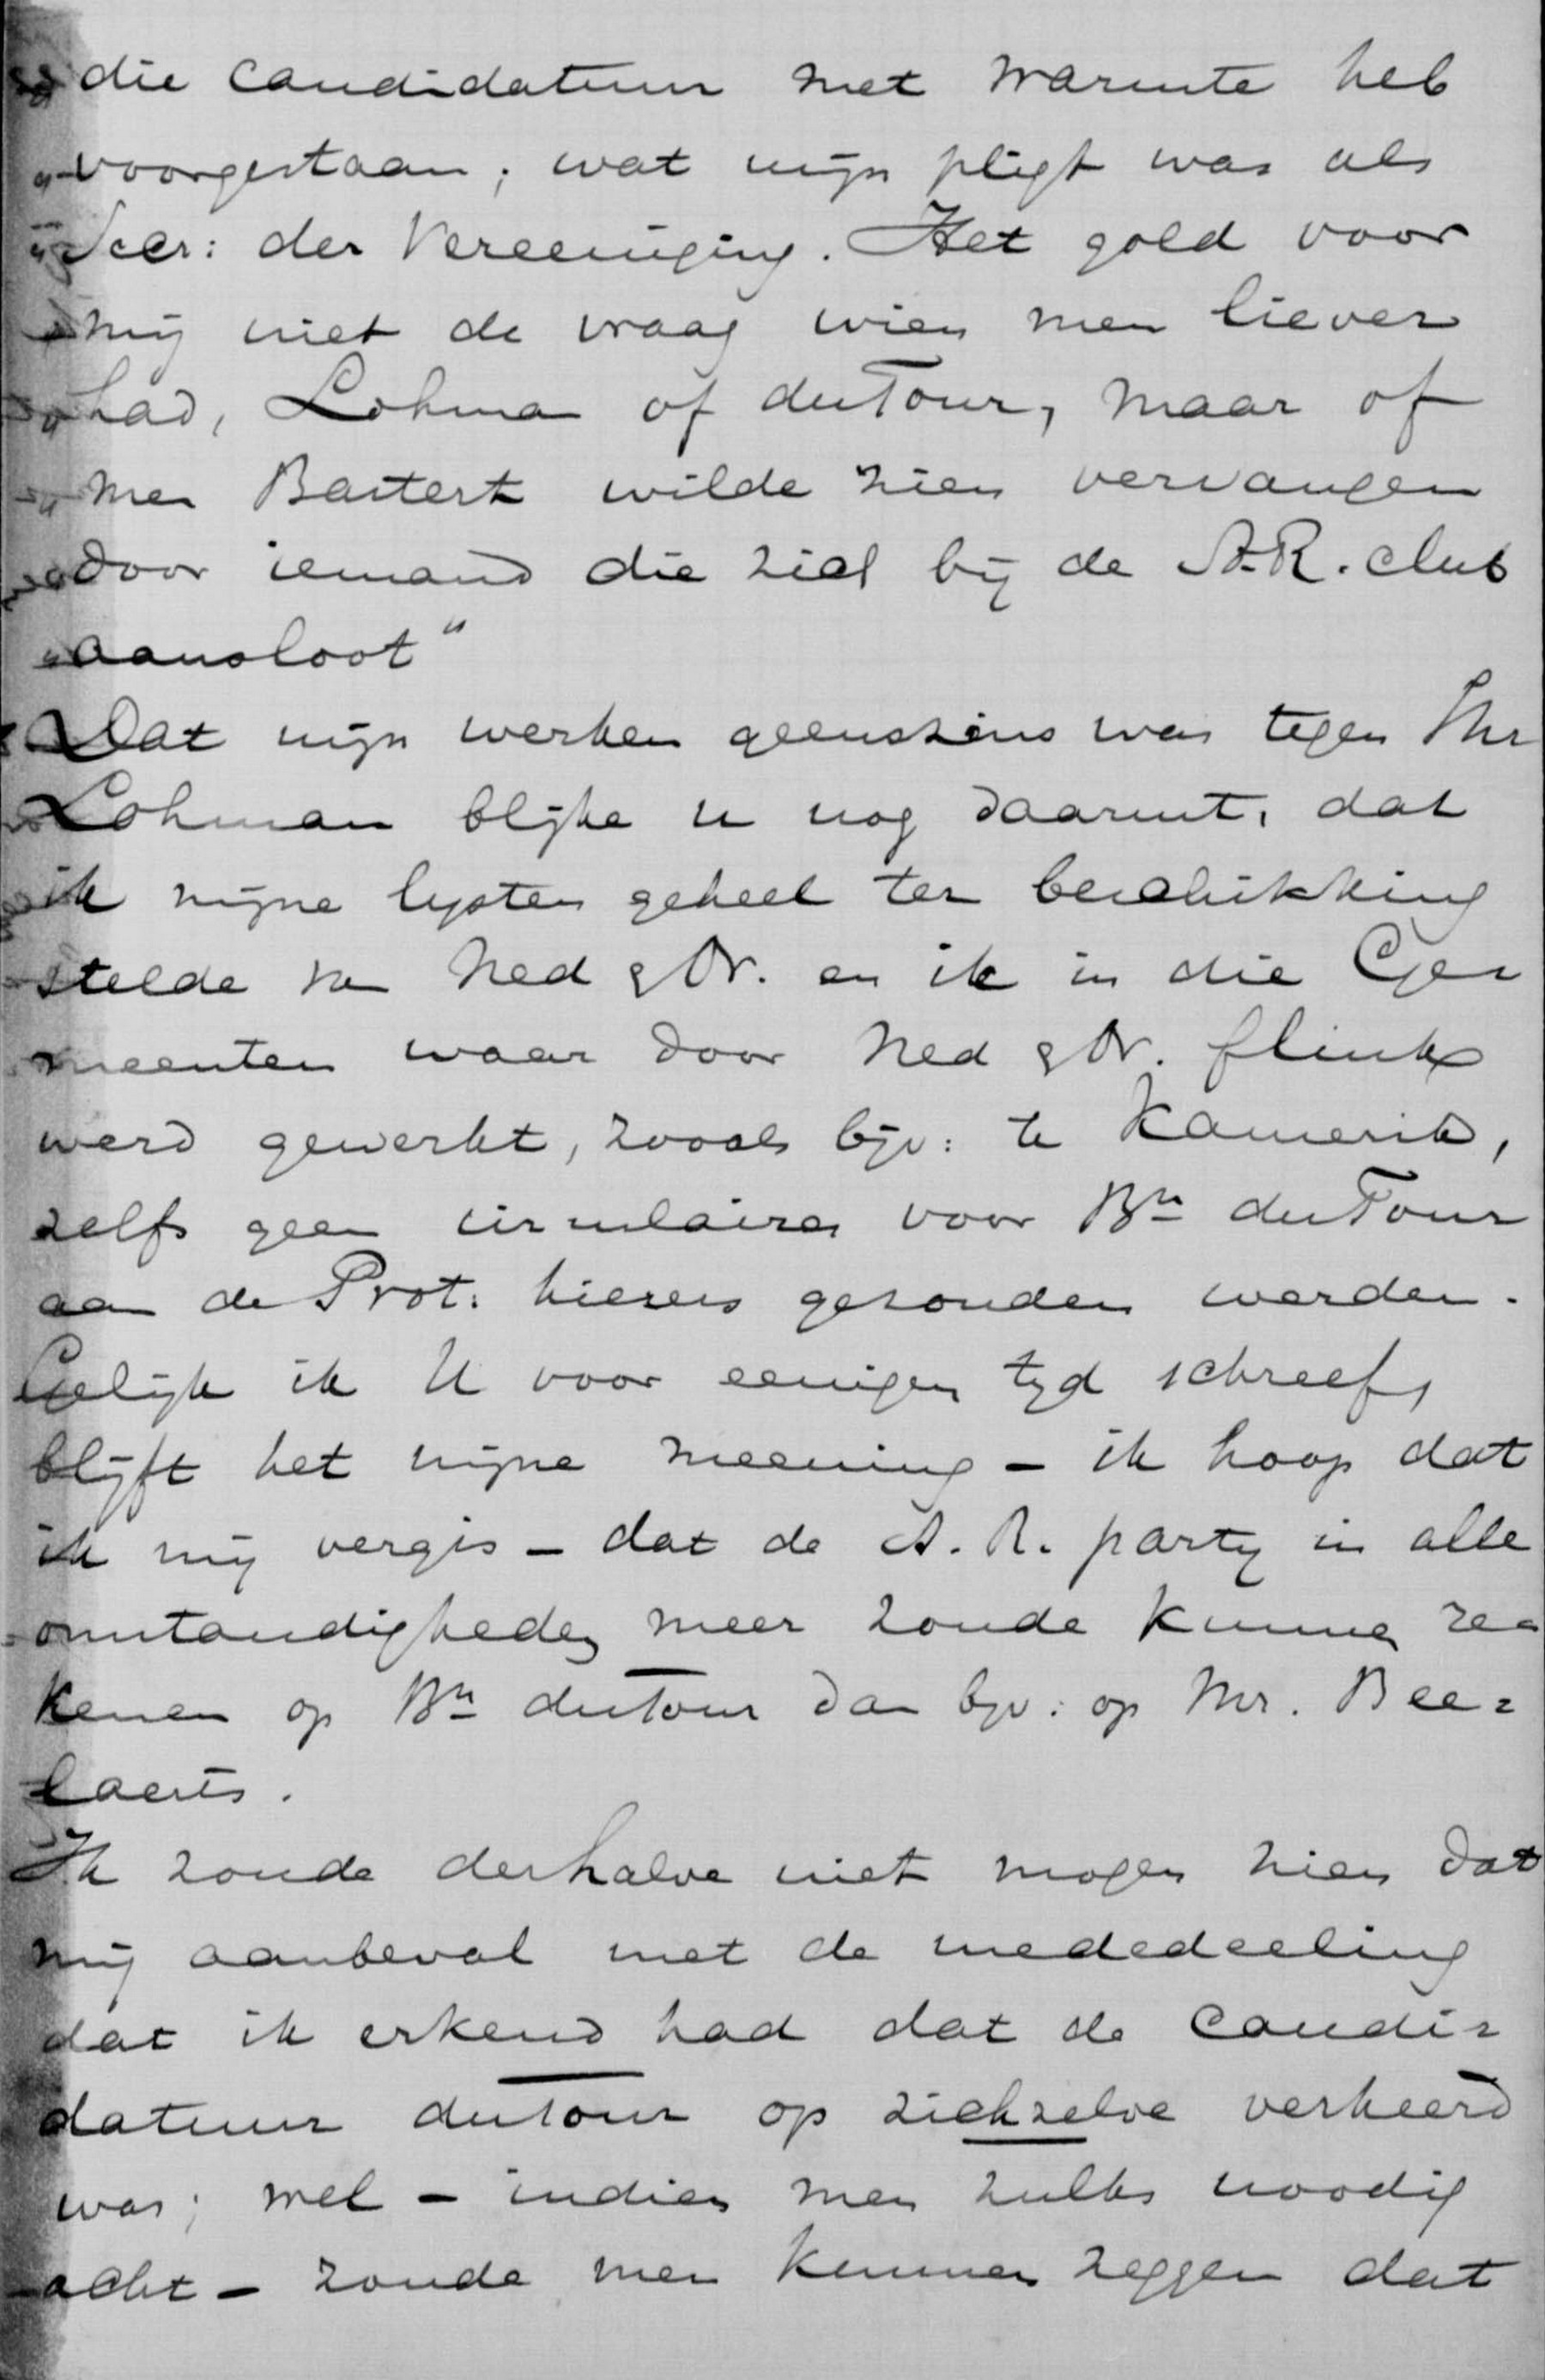 „die candidatuur met warmte heb
„voorgestaan; wat mijn pligt was als
„Secr: der Vereeniging. Het gold voor
„mij niet de vraag wien men liever
„had, Lohma of duTour, maar of
„men Bastert wilde zien vervangen
„door iemand die zich bij de A.R. club
„aansloot"
Dat mijn werken geenszins was tegen Jhr
Lohman blijke u nog daaruit, dat
ik mijne lijsten geheel ter beschikking
stelde van Ned & Or. en ik in die Ge=
meenten waar door Ned & Or. flink
werd gewerkt, zooals bijv: te Kamerik,
zelfs geen circulaires voor Bn duTour
aan de Prot: kiezers gezonden werden.
Gelijk ik U voor eenigen tijd schreef,
blijft het mijne meening - ik hoop dat
ik mij vergis - dat de A.R. partij in alle
omstandigheden meer zoude kunnen re=
kenen op Bn duTour dan bijv: op Mr. Bee=
laerts.
Ik zoude derhalve niet mogen zien dat
mij aanbeval met de mededeeling
dat ik erkend had dat de candi=
datuur duTour op zichzelve verkeerd
was; wel - indien men zulks noodig
acht - zoude men kunnen zeggen dat